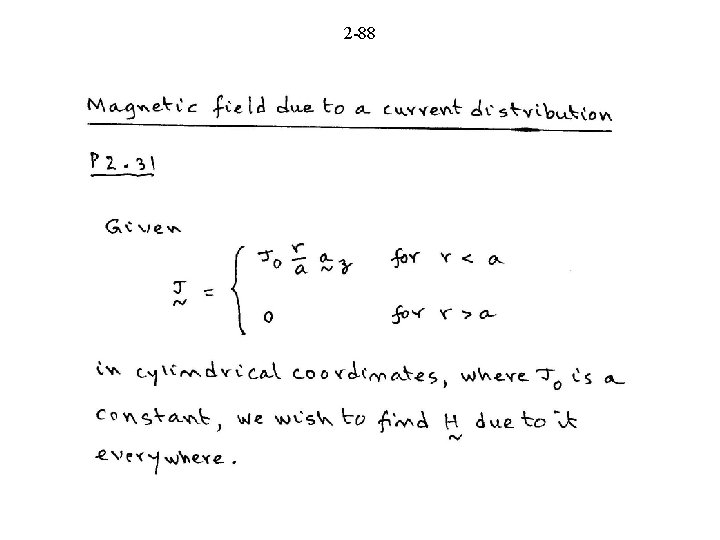 2-88
Magnetic field due to a current distribution
P2.31
Given
J = { J₀ r/a a_z for r < a
0 for r > a
in cylindrical coordinates, where J₀ is a
constant, we wish to find H due to it
everywhere.